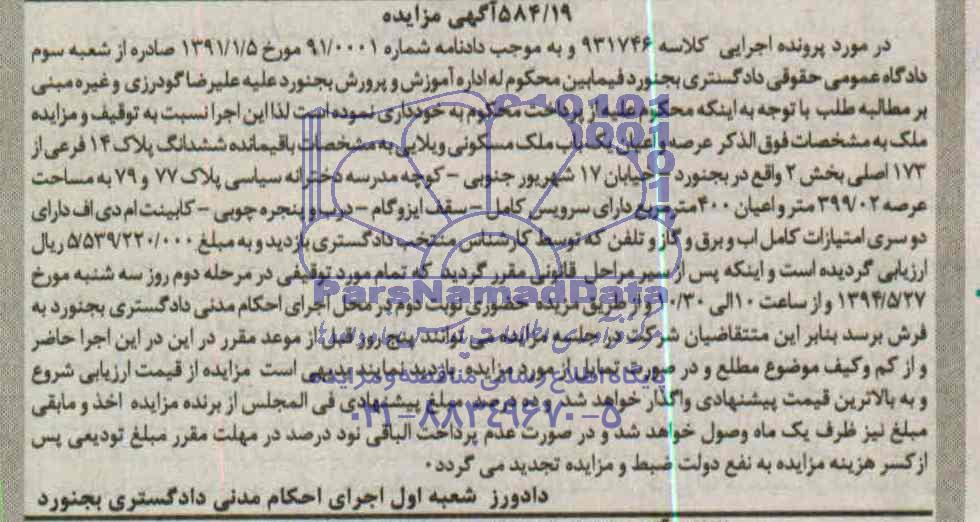 ۵۸۴/۱۹آگهی مزایده
در مورد پرونده اجرایی کلاسه ۹۳۱۷۴۶ و به موجب دادنامه شماره ۹۱/۰۰۰۱ مورخ ۱۳۹۱/۱/۵ صادره از شعبه سوم
دادگاه عمومی حقوقی دادگستری بجنورد فیمابین محکوم له اداره آموزش و پرورش بجنورد علیه علیرضا گودرزی و غیره مبنی
بر مطالبه طلب با توجه به اینکه محکوم علیه از پرداخت محکوم به خودداری نموده است لذا این اجرا نسبت به توقیف و مزایده
ملک به مشخصات فوق الذکر عرصه و اعیان یک باب ملک مسکونی ویلایی به مشخصات باقیمانده ششدانگ پلاک ۱۴ فرعی از
۱۷۳ اصلی بخش ۲ واقع در بجنورد – خیابان ۱۷ شهریور جنوبی – کوچه مدرسه دخترانه سیاسی پلاک ۷۷ و ۷۹ به مساحت
عرصه ۳۹۹/۰۲ متر و اعیان ۴۰۰ مترمربع دارای سرویس کامل – سقف ایزوگام – درب و پنجره چوبی – کابینت ام دی اف دارای
دو سری امتیازات کامل اب و برق و گاز و تلفن که توسط کارشناس منتخب دادگستری بازدید و به مبلغ ۵/۵۳۹/۲۲۰/۰۰۰ ریال
ارزیابی گردیده است و اینکه پس از سیر مراحل قانونی مقرر گردید که تمام مورد توقیفی در مرحله دوم روز سه شنبه مورخ
۱۳۹۴/۵/۲۷ و از ساعت ۱۰ الی ۱۰/۳۰ و از طریق مزایده حضوری نوبت دوم در محل اجرای احکام مدنی دادگستری بجنورد به
فرش برسد بنابر این متتقاضیان شرکت در جلسه مزایده می توانند پنج روز قبل از موعد مقرر در این در این اجرا حاضر
و از کم وکیف موضوع مطلع و در صورت تمایل از مورد مزایده بازدید نمایند بدیهی است مزایده از قیمت ارزیابی شروع
و به بالاترین قیمت پیشنهادی واگذار خواهد شد و ده درصد مبلغ پیشنهادی فی المجلس از برنده مزایده اخذ و مابقی
مبلغ نیز ظرف یک ماه وصول خواهد شد و در صورت عدم پرداخت الباقی نود درصد در مهلت مقرر مبلغ تودیعی پس
ازکسر هزینه مزایده به نفع دولت ضبط و مزایده تجدید می گردد.
دادورز شعبه اول اجرای احکام مدنی دادگستری بجنورد
ParsNamadData
پایگاه اطلاع رسانی مناقصه و مزایده
۰۲۱-۸۸۳۴۹۶۷۰-۵